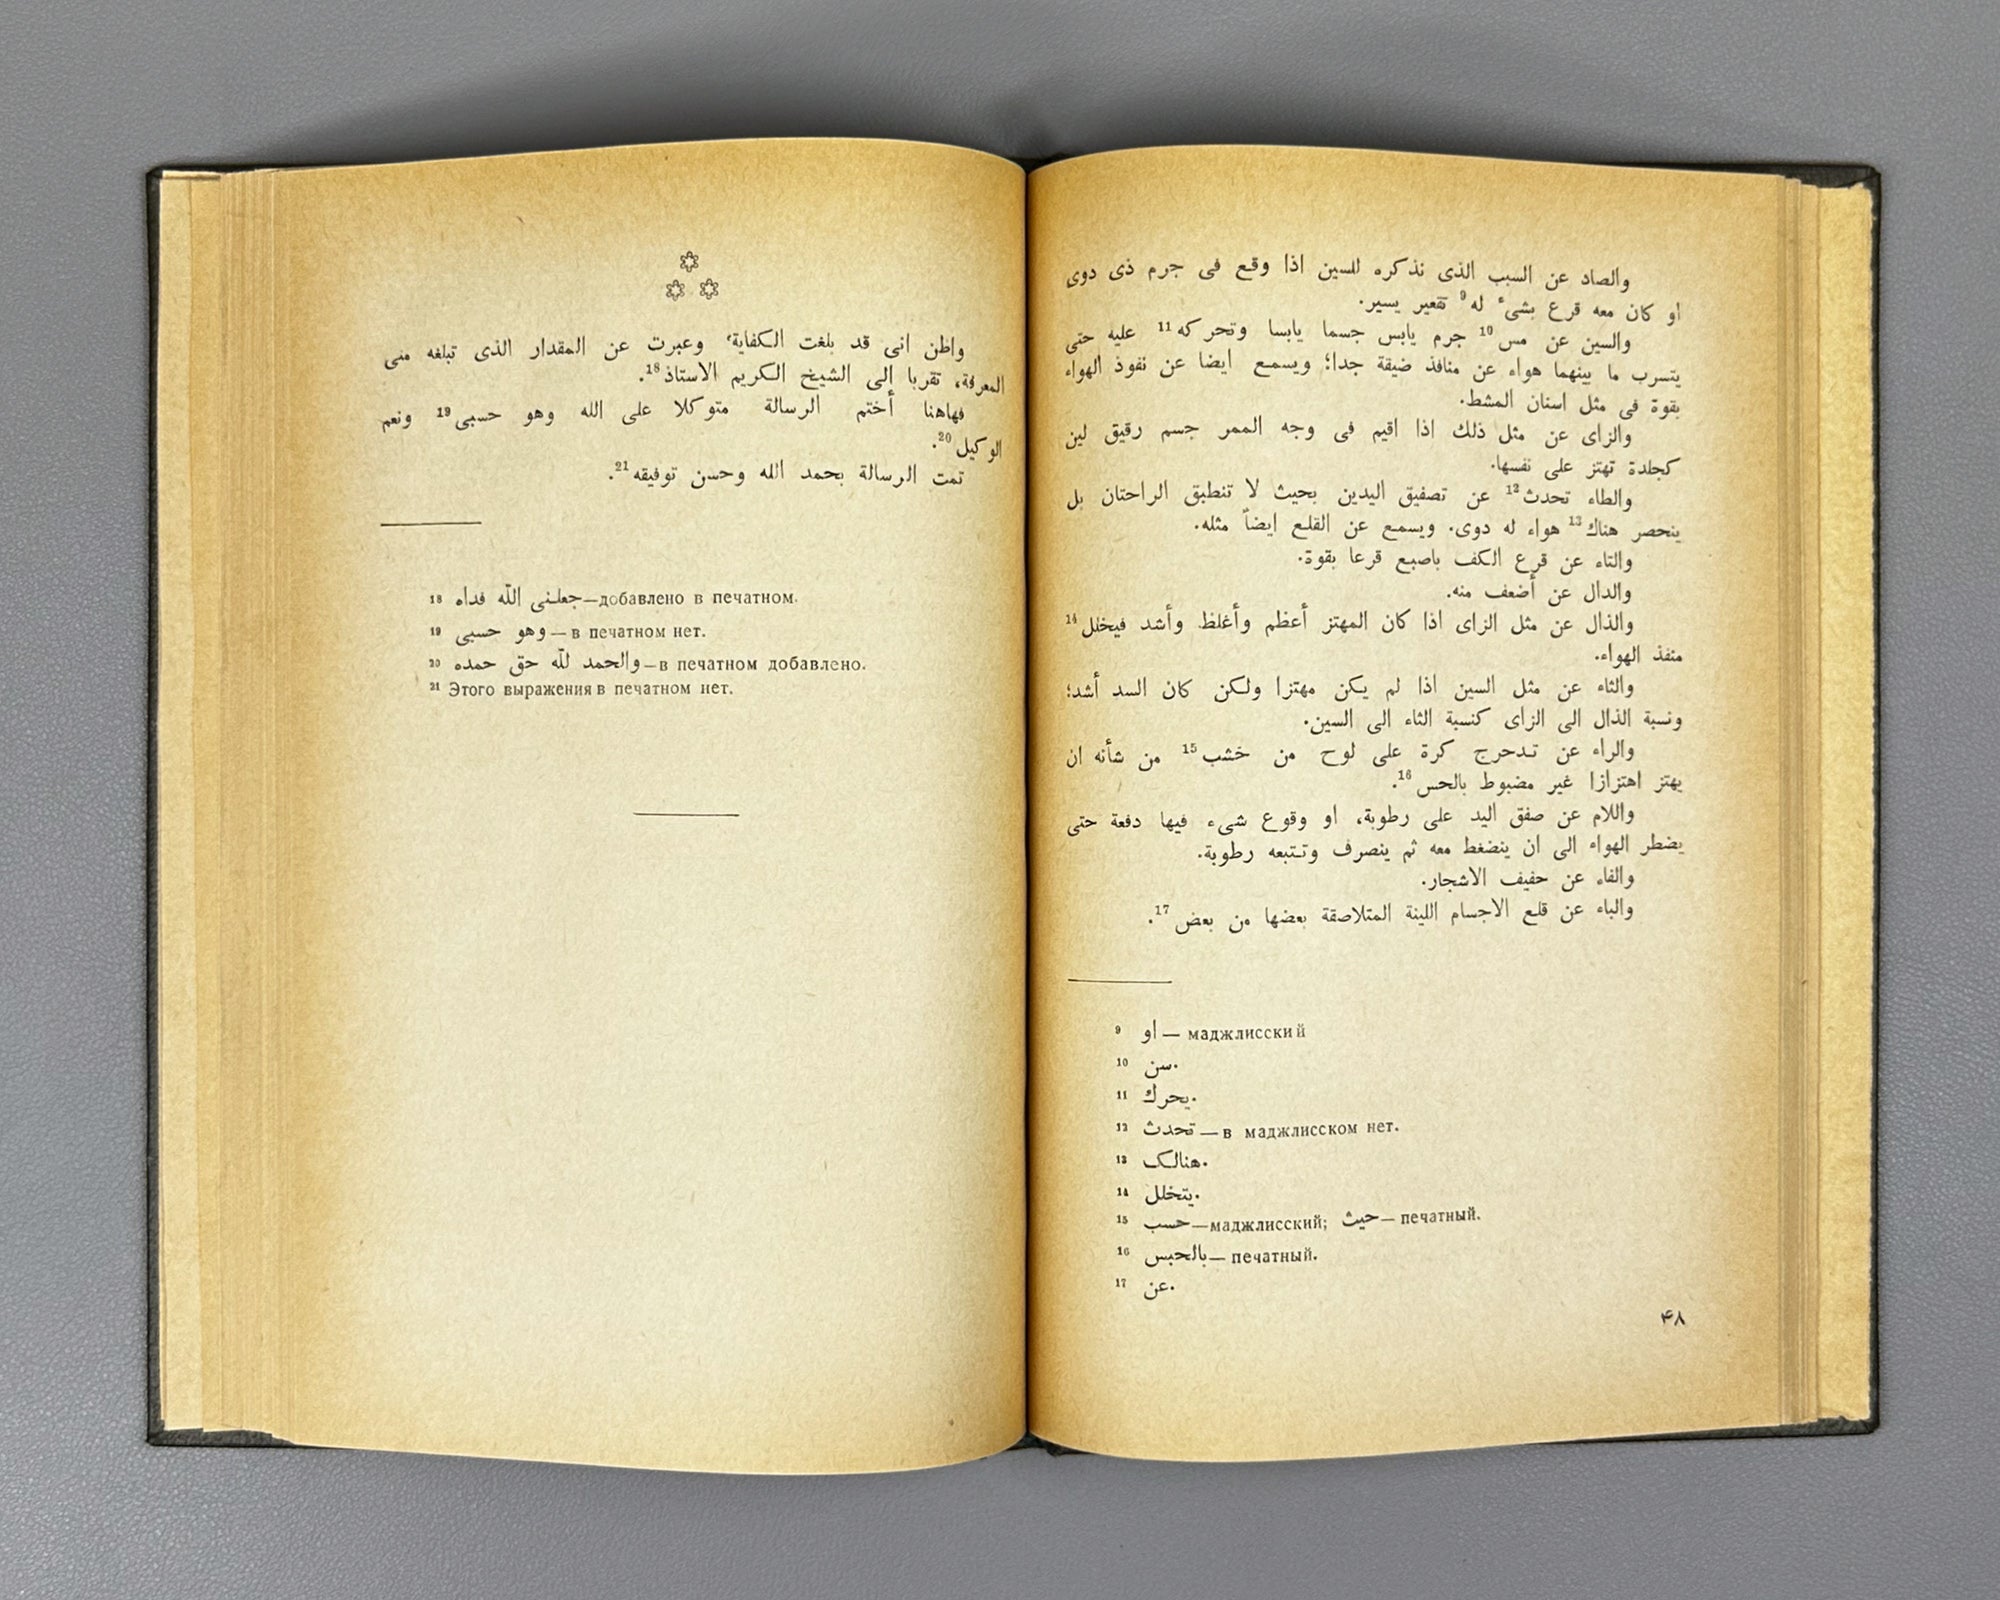 والصاد عن السبب الذى نذكره للسين اذا وقع فى جرم ذى دوى
او كان معه قرع بشىء له⁹ تقعير يسير.
والسين عن مس¹⁰ جرم يابس جسما يابسا وتحركه¹¹ عليه حتى
يتسرب ما بينهما هواء عن منافذ ضيقة جدا؛ ويسمع ايضا عن نفوذ الهواء
بقوة فى مثل اسنان المشط.
والزاى عن مثل ذلك اذا اقيم فى وجه الممر جسم رقيق لين
كجلدة تهتز على نفسها.
والطاء تحدث¹² عن تصفيق اليدين بحيث لا تنطبق الراحتان بل
ينحصر هناك¹³ هواء له دوى. ويسمع عن القلع ايضاً مثله.
والتاء عن قرع الكف باصبع قرعا بقوة.
والدال عن أضعف منه.
والذال عن مثل الزاى اذا كان المهتز أعظم وأغلظ وأشد فيخلل¹⁴
منفذ الهواء.
والثاء عن مثل السين اذا لم يكن مهتزا ولكن كان السد أشد؛
ونسبة الذال الى الزاى كنسبة الثاء الى السين.
والراء عن تدحرج كرة على لوح من خشب¹⁵ من شأنه ان
يهتز اهتزازا غير مضبوط بالحس¹⁶.
واللام عن صفق اليد على رطوبة، او وقوع شىء فيها دفعة حتى
يضطر الهواء الى ان ينضغط معه ثم ينصرف وتتبعه رطوبة.
والفاء عن حفيف الاشجار.
والباء عن قلع الاجسام اللينة المتلاصقة بعضها من بعض¹⁷.
⁹ او — маджлисский
¹⁰ سن.
¹¹ يحرك.
¹² تحدث — в маджлисском нет.
¹³ هنالک.
¹⁴ يتخلل.
¹⁵ حسب — маджлисский; حيث — печатный.
¹⁶ بالحبس — печатный.
¹⁷ عن.
۴۸
واظن انى قد بلغت الكفاية، وعبرت عن المقدار الذى تبلغه منى
المعرفة، تقربا إلى الشيخ الكريم الاستاذ¹⁸.
فهاهنا أختم الرسالة متوكلا على الله وهو حسبى¹⁹ ونعم
الوكيل²⁰.
تمت الرسالة بحمد الله وحسن توفيقه²¹.
¹⁸ جعلنى الله فداه — добавлено в печатном.
¹⁹ وهو حسبى — в печатном нет.
²⁰ والحمد لله حق حمده — в печатном добавлено.
²¹ Этого выражения в печатном нет.